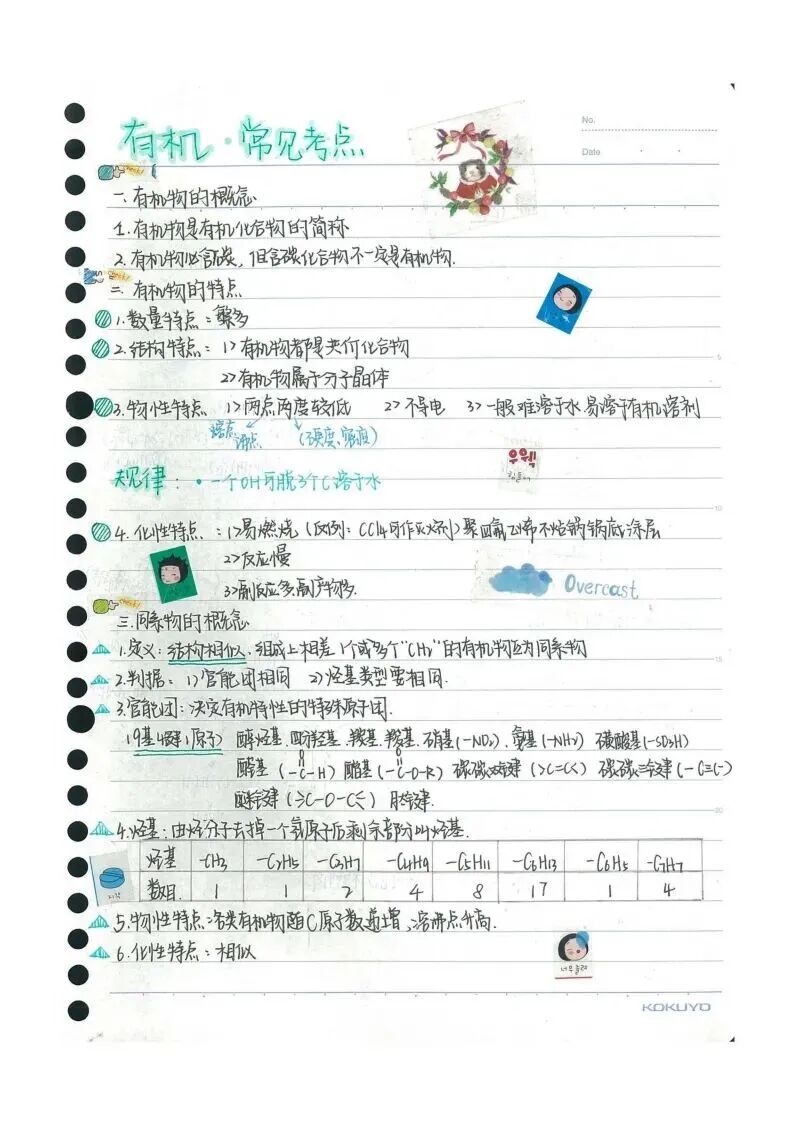 有机·常见考点
No.
Date
一.有机物的概念
1.有机物是有机化合物的简称
2.有机物必含碳,但含碳化合物不一定是有机物.
二.有机物的特点
1.数量特点:繁多
2.结构特点: 1>有机物都是共价化合物
2>有机物属于分子晶体
3.物性特点 1>两点两度较低 2>不导电 3>一般难溶于水易溶于有机溶剂
熔点 沸点 (硬度、密度)
우웩
规律:·一个OH可脱3个C溶于水
4.化性特点:1>易燃烧(反例:CCl4可作灭火剂)聚四氟乙烯不粘锅锅底涂层
2>反应慢
3>副反应多,副产物多.
Overcast
三.同系物的概念
1.定义:结构相似、组成上相差1个或多个"CH2"的有机物互为同系物
2.判据: 1>官能团相同 2>烃基类型要相同.
3.官能团:决定有机特性的特殊原子团.
(9基4键1原子) 醇羟基、酚羟基、羰基、羧基、硝基(-NO2)、氨基(-NH2) 磺酸基(-SO3H)
醛基(-C-H) 酯基(-C-O-R) 碳碳双键(>C=C<) 碳碳三键(-C≡C-)
O O
醚键(≥C-O-C≤) 肽键.
4.烃基:由烃分子去掉一个氢原子后剩余部分叫烃基.
烃基 -CH3 -C2H5 -C3H7 -C4H9 -C5H11 -C6H13 -C6H5 -C7H7
数目 1 1 2 4 8 17 1 4
5.物性特点:各类有机物随C原子数递增,溶沸点升高.
6.化性特点:相似
너무놀려
KOKUYO
5
10
15
20